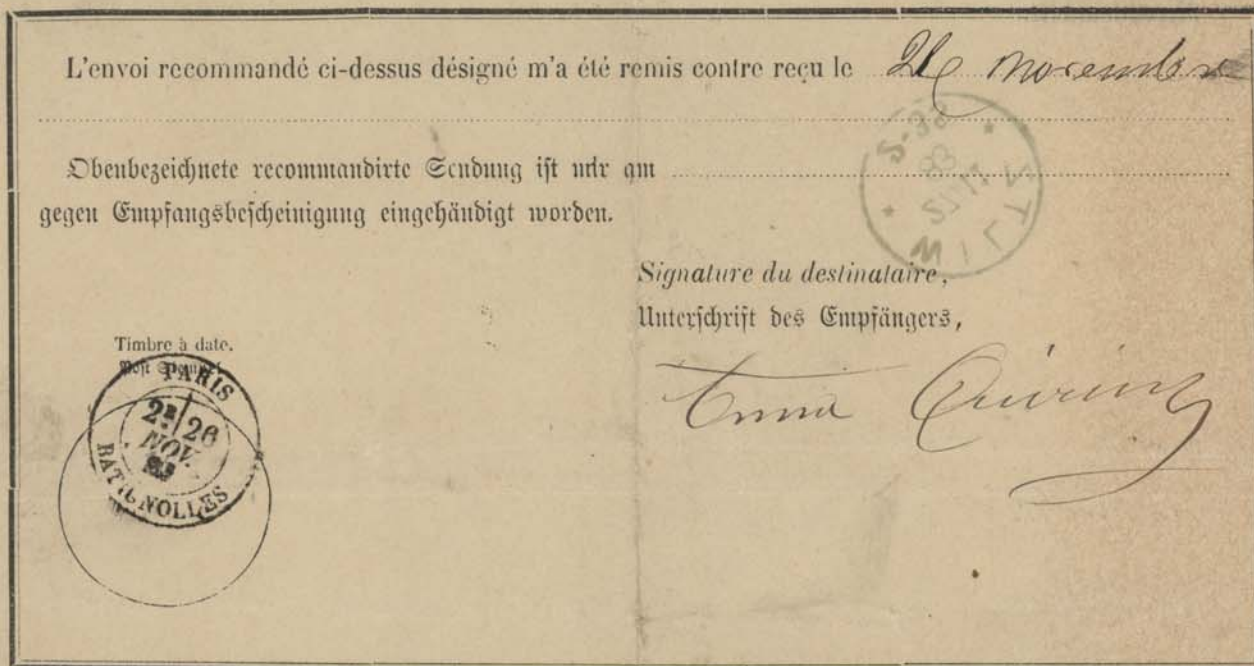 L'envoi recommandé ci-dessus désigné m'a été remis contre reçu le 26 novembre
Obenbezeichnete recommandirte Sendung ist mir am
gegen Empfangsbescheinigung eingehändigt worden.
Signature du destinataire,
Unterschrift des Empfängers,
Timbre à date.
Post Stempel
PARIS
2E 26
NOV.
BATIGNOLLES
WILTZ